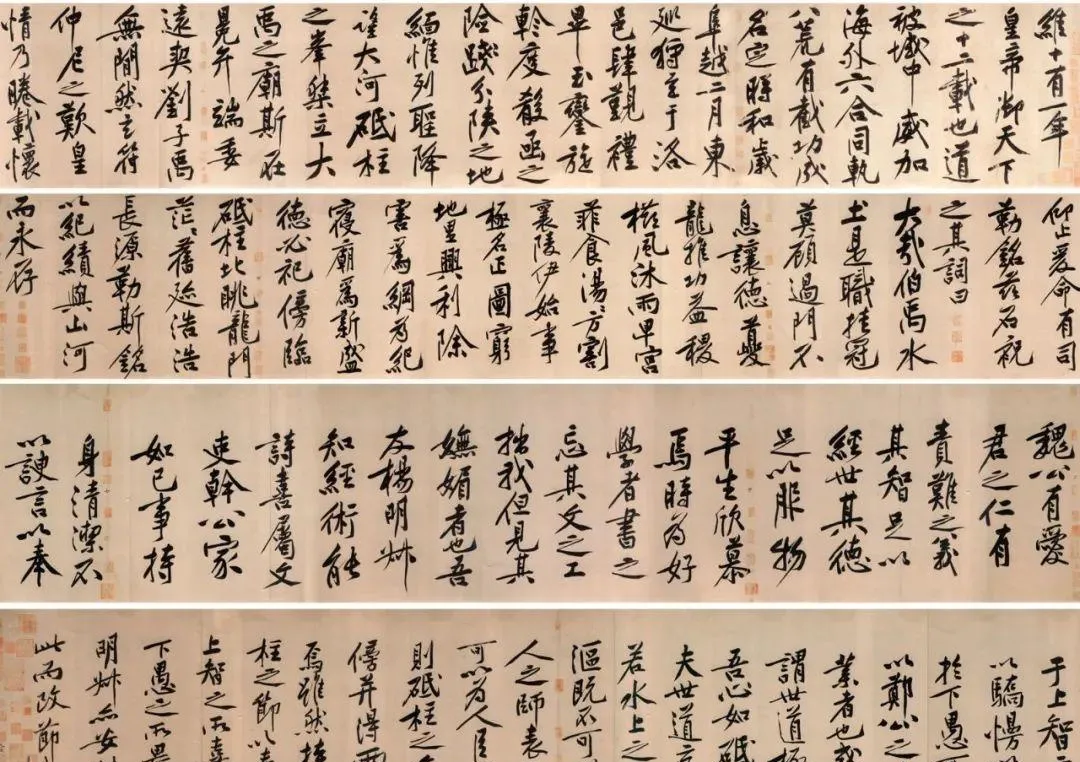 維十有一年
皇帝御天下
之十二載也道
被域中威加
海外六合同軌
八荒有截功成
名定時和歲
阜越二月東
巡狩至于洛
邑肆觀禮
畢玉鑾旋
軫度殽函之
險踐分陝之地
緬惟列聖降
望大河砥柱
之峯桀立大
禹之廟斯在
冕弁端委
遠契劉子禹
無間然玄符
仲尼之歎皇
情乃睠載懷
仰止爰命有司
勒銘茲石祝
之其詞曰
大哉伯禹水
土是職挂冠
莫顧過門不
息讓德夔
龍推功益稷
櫛風沐雨卑宮
菲食湯〻方割
襄陵伊始事
極名正圖窮
地里興利除
害為綱為紀
寢廟為新盛
德必祀傍臨
砥柱北眺龍門
茫〻舊迹浩浩
長源勒斯銘
以紀績與山河
而永存
魏公有愛
君之仁有
責難之義
其智足以
經世其德
足以服物
平生欣慕
焉時為好
學者書之
忘其文之工
拙我但見其
嫵媚者也吾
友楊明叔
知經術能
詩喜屬文
吏幹公家
如己事持
身清潔不
以諛言以奉
于上智
以驕慢
於下愚
以鄭公之
業者也或
謂世道極
吾心如砥
夫世道
若水上之
漚既不可
人之師表
可以為人臣
則砥柱之
傍并得兩
焉雖然持
柱之節以
上智之所喜
下愚之所畏
明叔亦安
此而改節